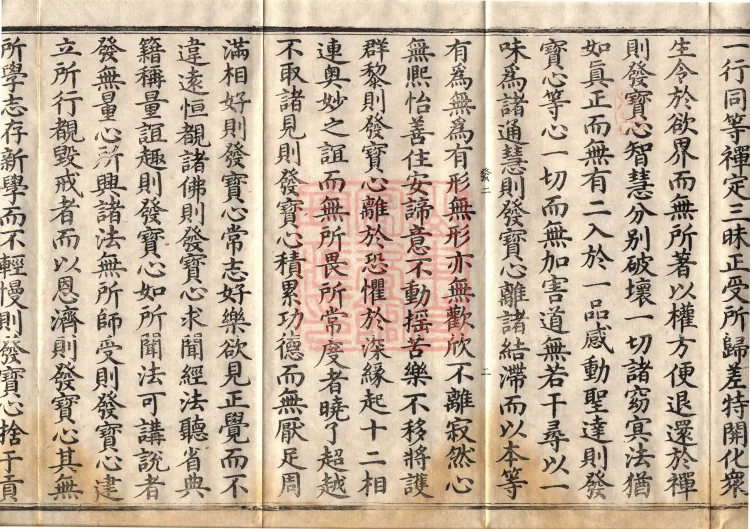 一行同等禪定三昧正受所歸差特開化衆
生令於欲界而無所著以權方便退還於禪
則發寶心智慧分別破壞一切諸窈冥法猶
如眞正而無有二入於一品感動聖達則發
寶心等心一切而無加害道無若干尋以一
味爲諸通慧則發寶心離諸結滯而以本等
二
有爲無爲有形無形亦無歡欣不離寂然心
無熈怡善住安諦意不動揺苦樂不移將護
群黎則發寶心離於恐懼於深縁起十二相
連奥妙之誼而無所畏所常度者曉了超越
不取諸見則發寶心積累功德而無厭足周
滿相好則發寶心常志好樂欲見正覺而不
違遠恒覩諸佛則發寶心求聞經法聽省典
籍稱量誼趣則發寶心如所聞法可講說者
發無量心所興諸法無所師受則發寶心建
立所行覩毀戒者而以恩濟則發寶心其無
所學志存新學而不輕慢則發寶心捨于貢